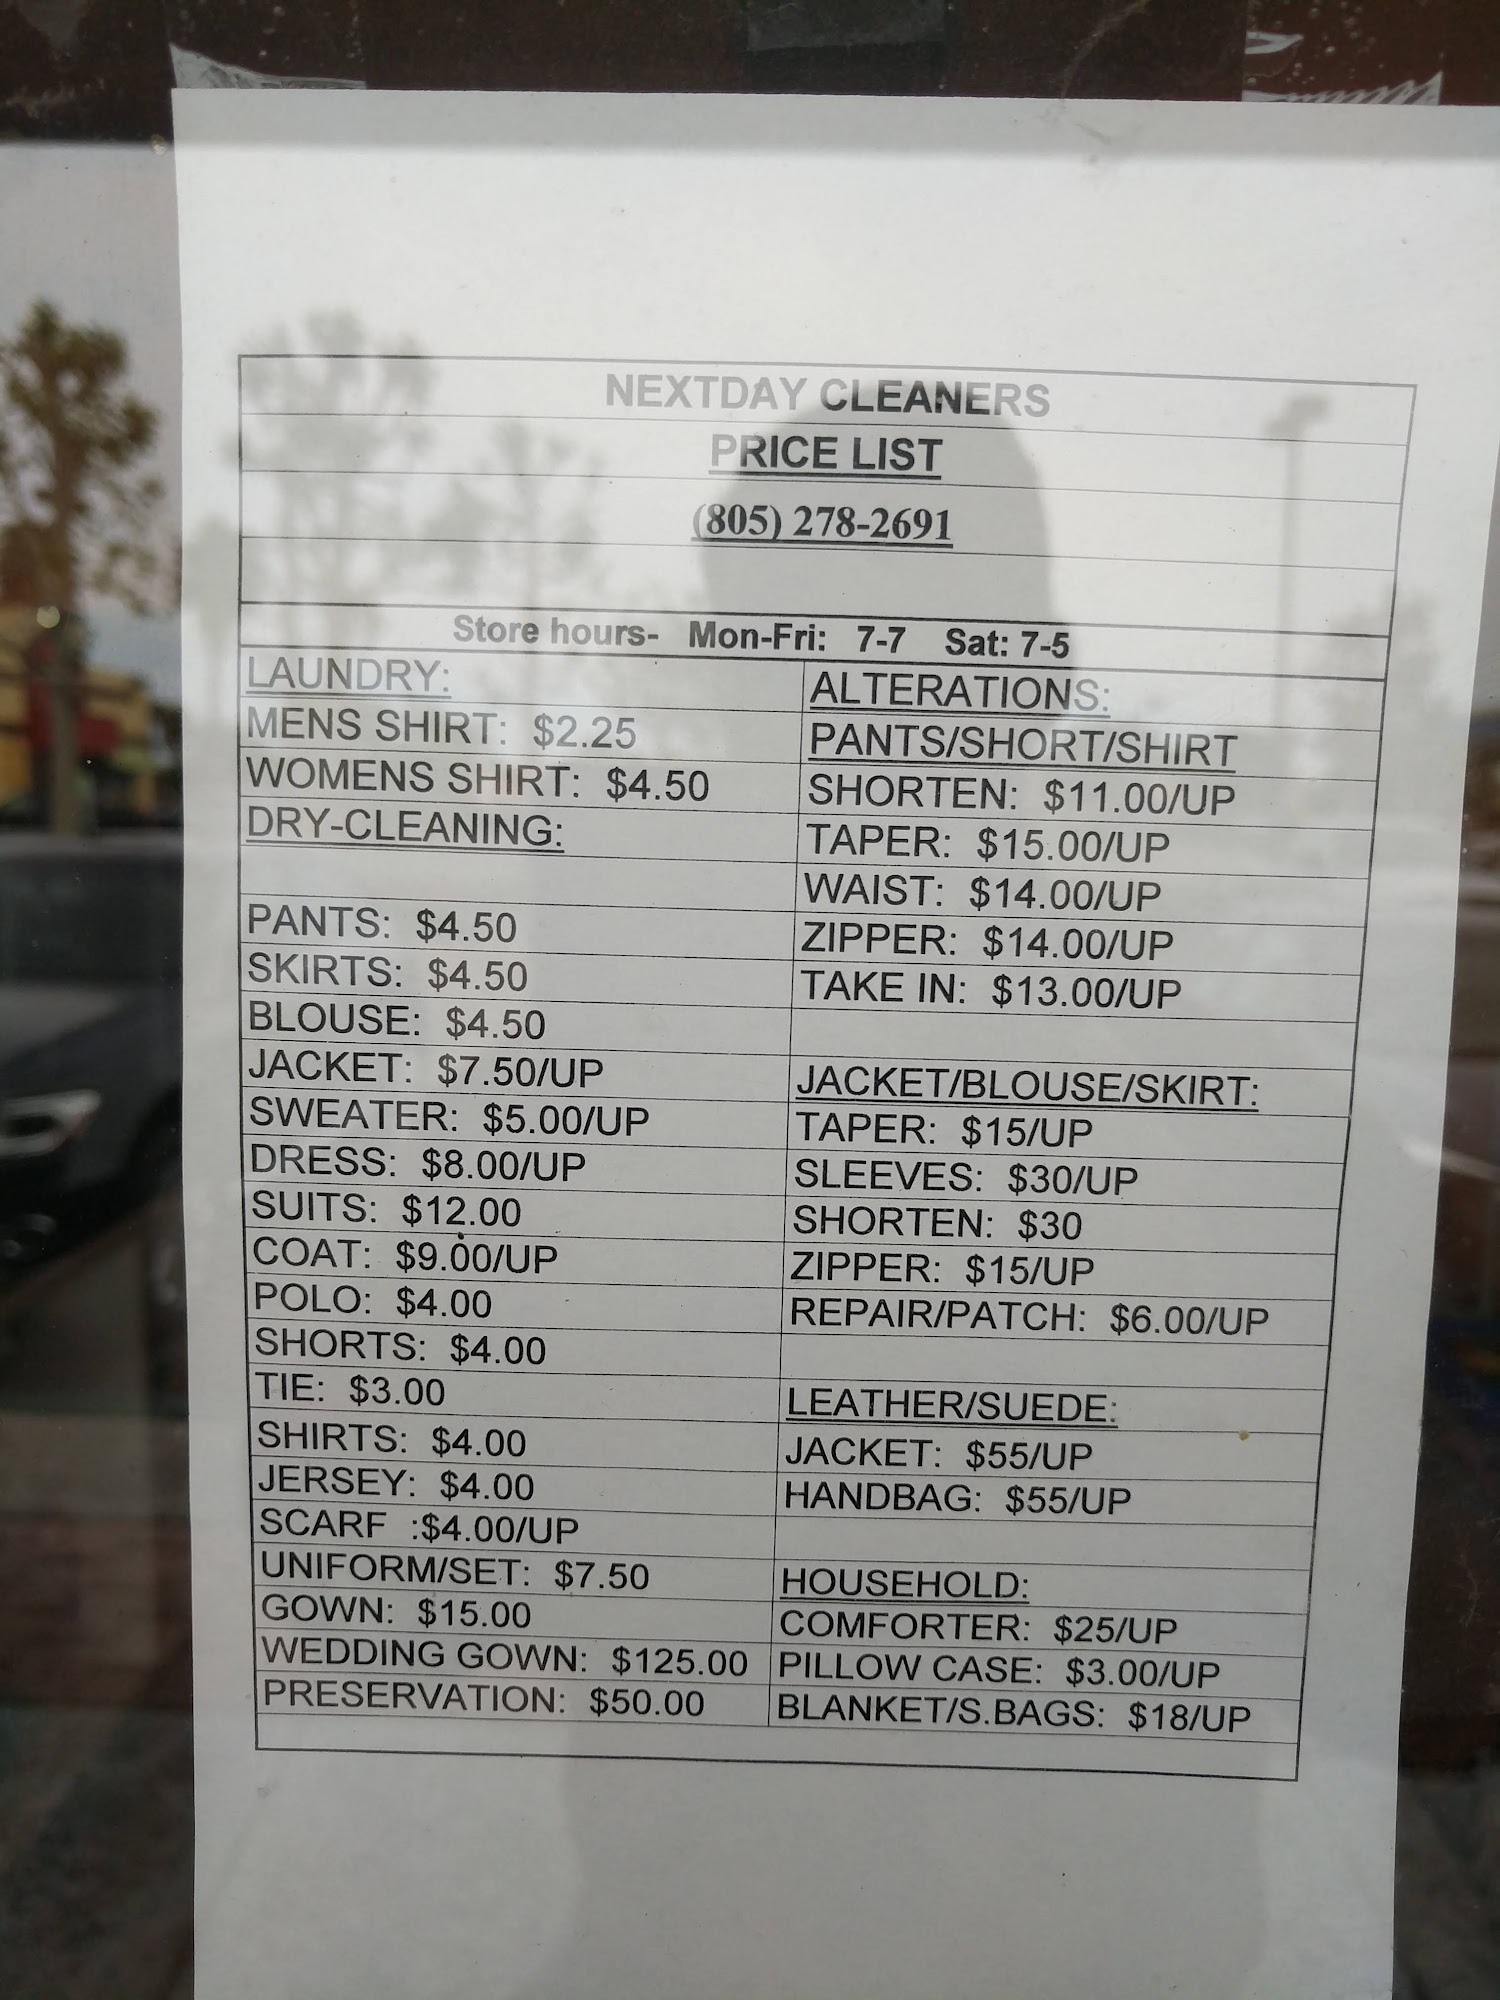 NEXTDAY CLEANERS
PRICE LIST
(805) 278-2691
Store hours- Mon-Fri: 7-7 Sat: 7-5
LAUNDRY:
MENS SHIRT: $2.25
WOMENS SHIRT: $4.50
DRY-CLEANING:
PANTS: $4.50
SKIRTS: $4.50
BLOUSE: $4.50
JACKET: $7.50/UP
SWEATER: $5.00/UP
DRESS: $8.00/UP
SUITS: $12.00
COAT: $9.00/UP
POLO: $4.00
SHORTS: $4.00
TIE: $3.00
SHIRTS: $4.00
JERSEY: $4.00
SCARF :$4.00/UP
UNIFORM/SET: $7.50
GOWN: $15.00
WEDDING GOWN: $125.00
PRESERVATION: $50.00
ALTERATIONS:
PANTS/SHORT/SHIRT
SHORTEN: $11.00/UP
TAPER: $15.00/UP
WAIST: $14.00/UP
ZIPPER: $14.00/UP
TAKE IN: $13.00/UP
JACKET/BLOUSE/SKIRT:
TAPER: $15/UP
SLEEVES: $30/UP
SHORTEN: $30
ZIPPER: $15/UP
REPAIR/PATCH: $6.00/UP
LEATHER/SUEDE:
JACKET: $55/UP
HANDBAG: $55/UP
HOUSEHOLD:
COMFORTER: $25/UP
PILLOW CASE: $3.00/UP
BLANKET/S.BAGS: $18/UP